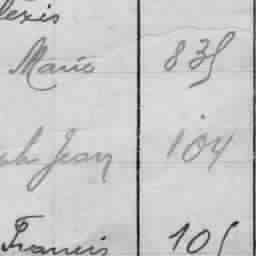 lexis
Marie 835
ph Jean 104
Francis 105